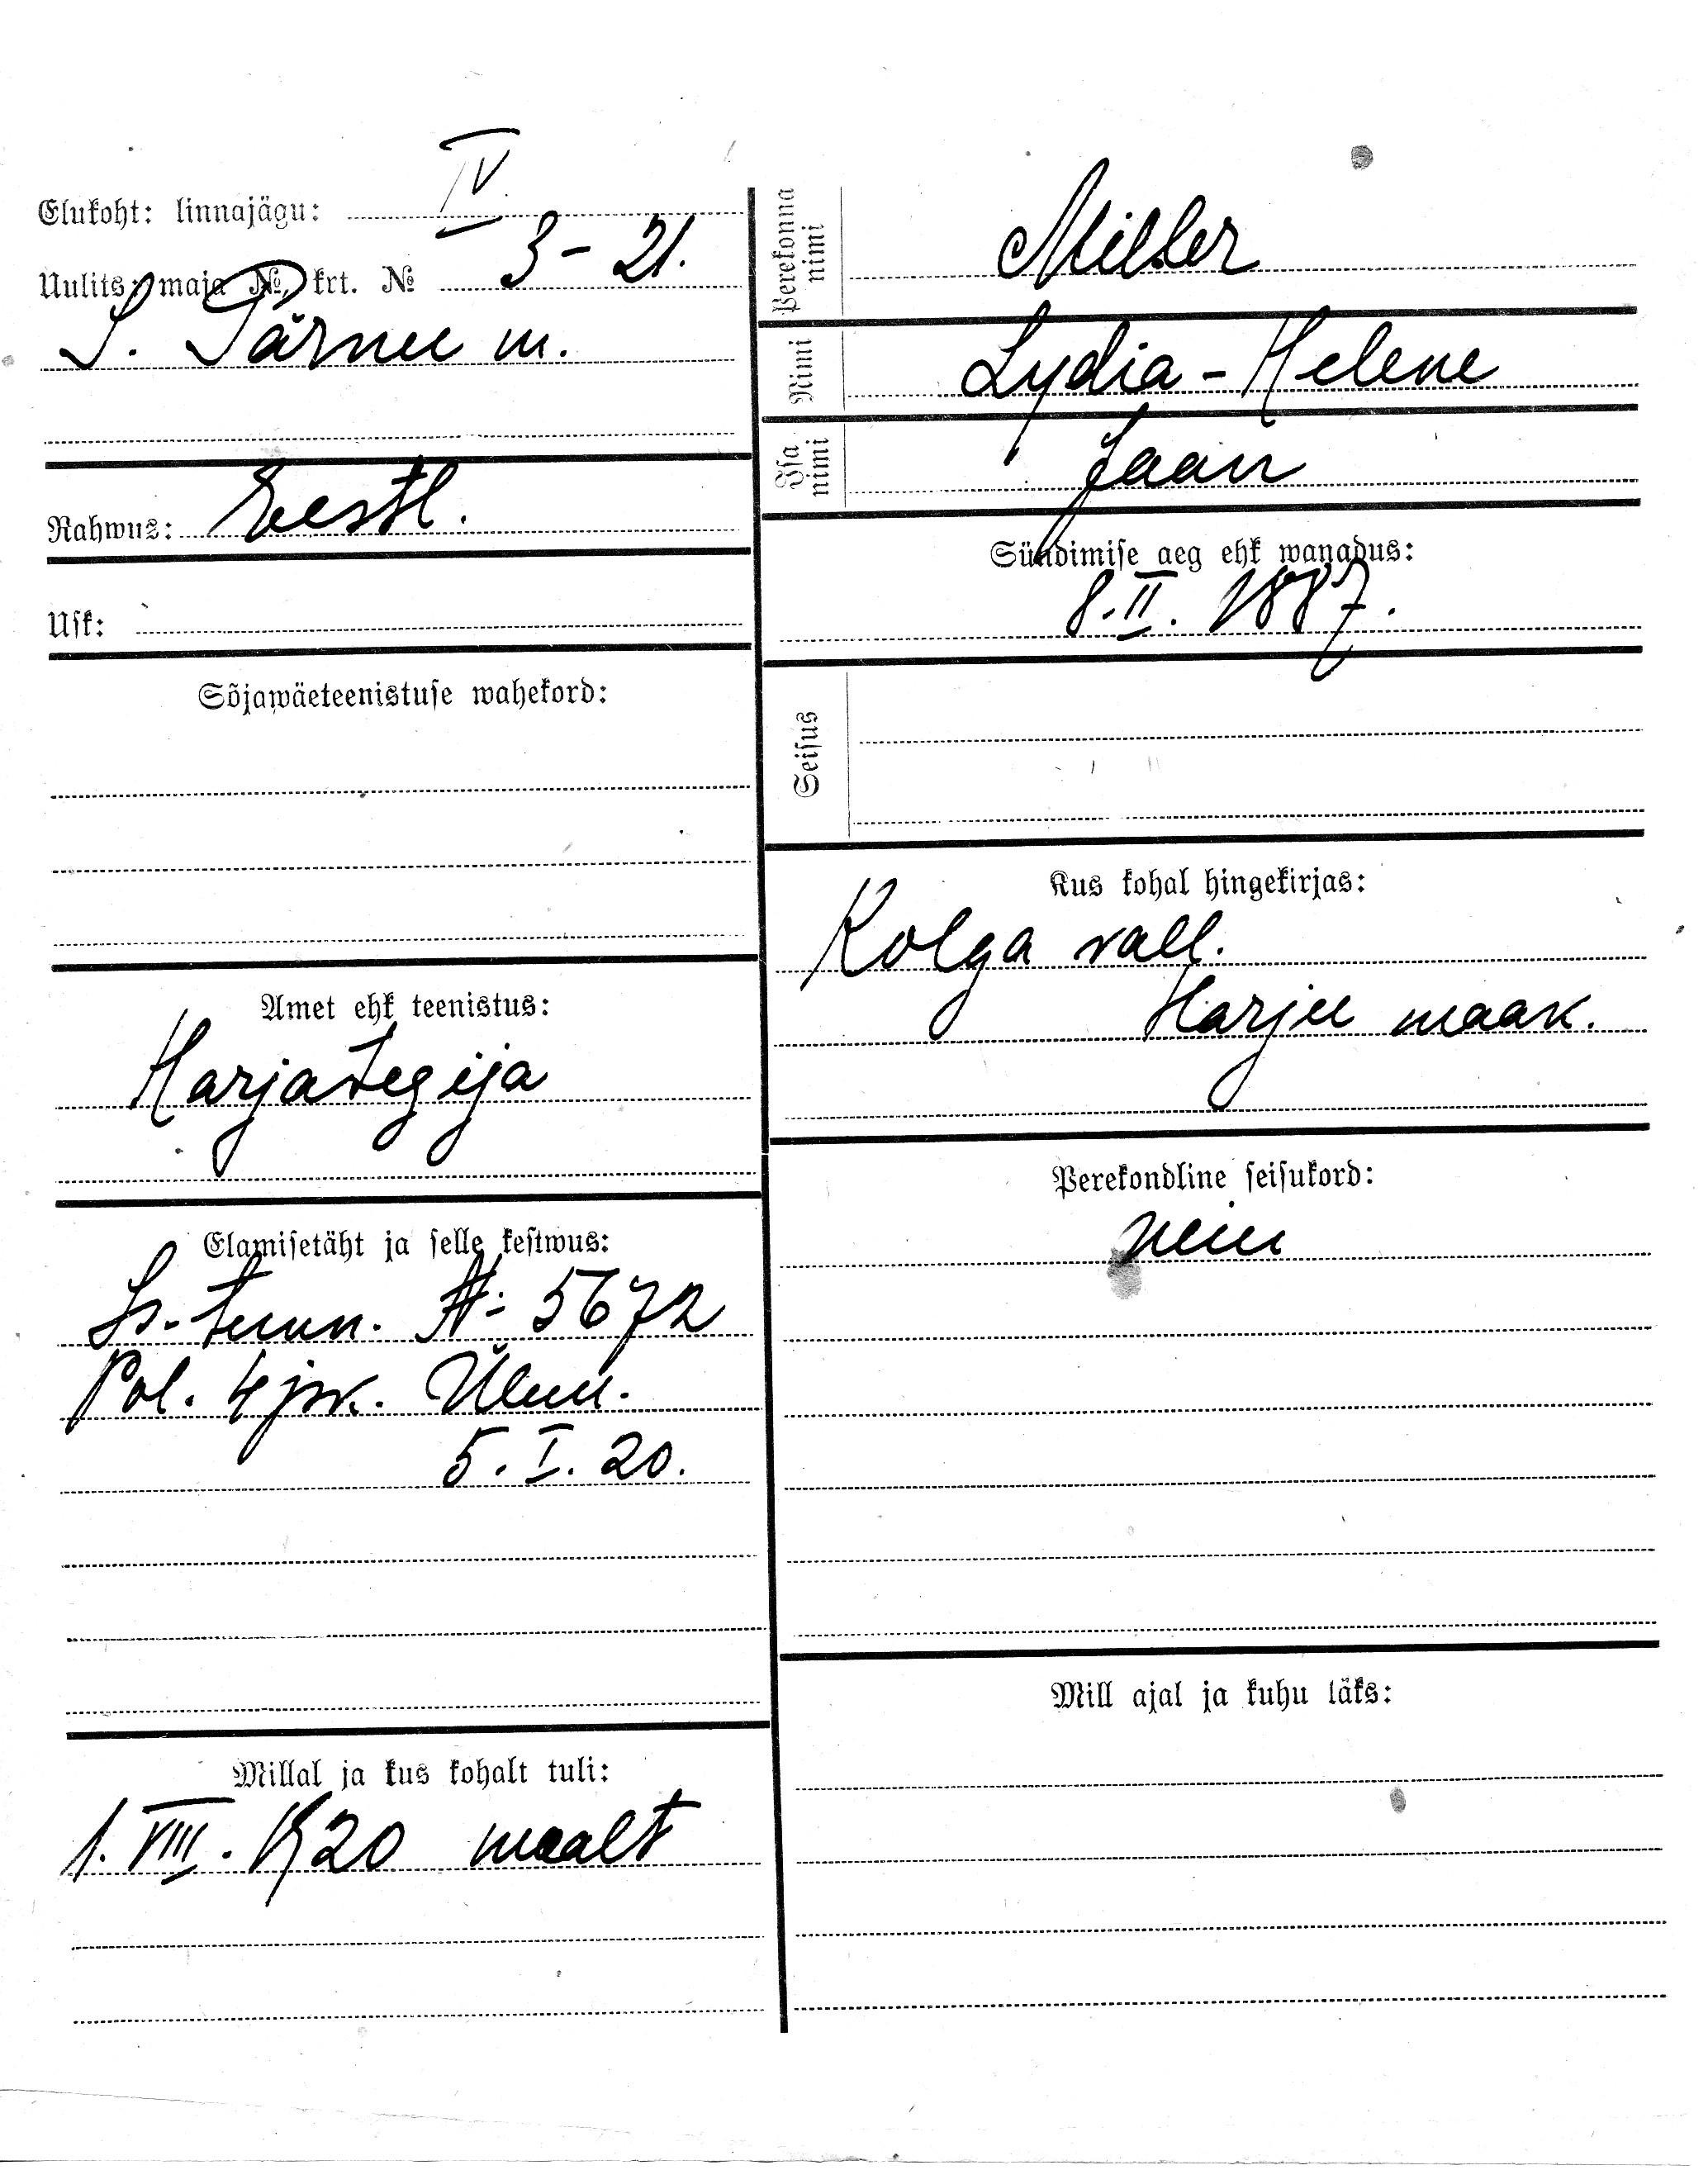 Elukoht: linnajägu: IV
Uulits: maja №, krt. № 3-21.
S. Pärnu m.
Rahwus: Eestl.
Usk:
Sõjawäeteenistuse wahekord:
Amet ehk teenistus:
Harjategija
Elamisetäht ja selle kestwus:
Is-tunn. №: 5672
Pol. 4 jsk. Ülem.
5. I. 20.
Millal ja kus kohalt tuli:
1. VIII. 1920 maalt
Perekonna nimi
Miller
Nimi
Lydia-Helene
Isa nimi
Jaan
Sündimise aeg ehk wanadus:
8. II. 1887.
Seisus
Kus kohal hingekirjas:
Kolga vall.
Harju maak.
Perekondline seisukord:
neiu
Mill ajal ja kuhu läks: